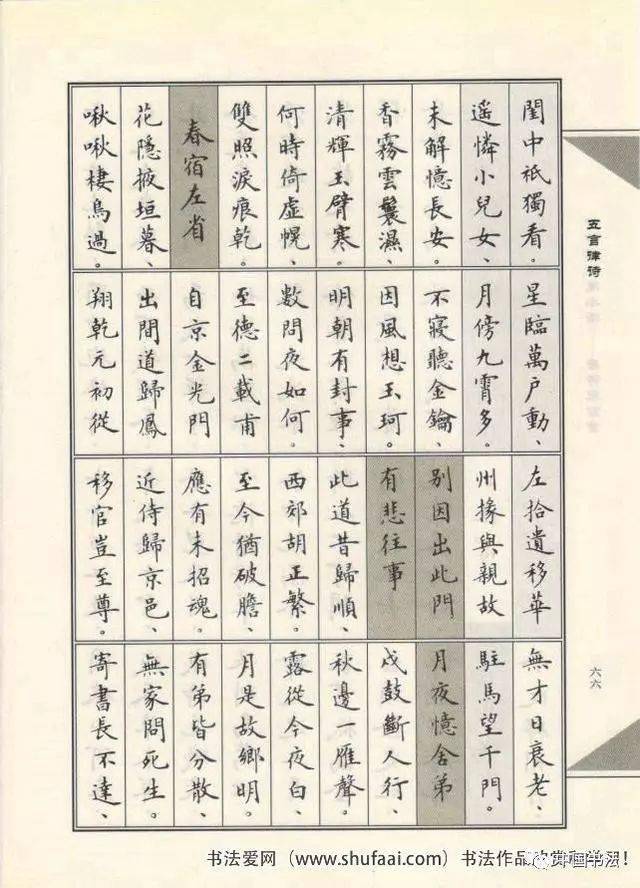 閨中祇獨看。
遥憐小兒女、
未解憶長安。
香霧雲鬟濕、
清輝玉臂寒。
何時倚虛幌、
雙照淚痕乾。
春宿左省
花隱掖垣暮、
啾啾棲鳥過。
星臨萬户動、
月傍九霄多。
不寢聽金鑰、
因風想玉珂。
明朝有封事、
數問夜如何。
至德二載甫
自京金光門
出間道歸鳳
翔乾元初從
左拾遺移華
州掾與親故
別因出此門
有悲往事
此道昔歸順、
西郊胡正繁。
至今猶破膽、
應有未招魂。
近侍歸京邑、
移官豈至尊。
無才日衰老、
駐馬望千門。
月夜憶舍弟
戍鼓斷人行、
秋邊一雁聲。
露從今夜白、
月是故鄉明。
有弟皆分散、
無家問死生。
寄書長不達、
五言律诗
六六
书法爱网（www.shufaai.com）书法作品
中国书法